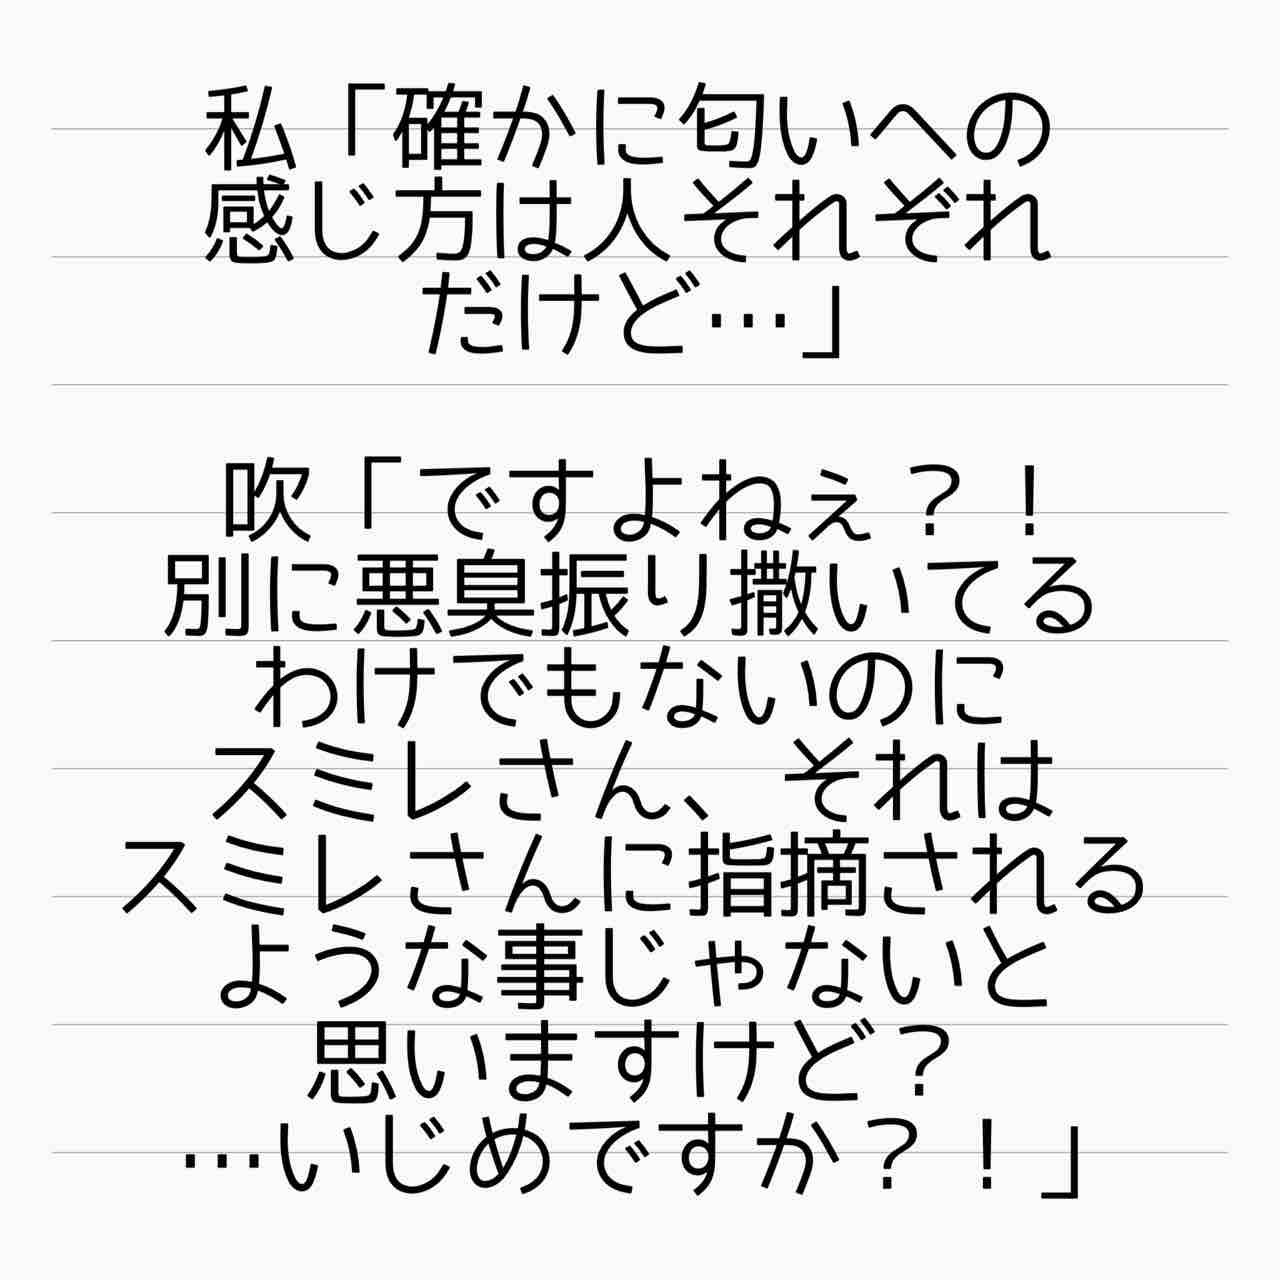 私「確かに匂いへの
感じ方は人それぞれ
だけど…」
吹「ですよねぇ？！
別に悪臭振り撒いてる
わけでもないのに
スミレさん、それは
スミレさんに指摘される
ような事じゃないと
思いますけど？
…いじめですか？！」